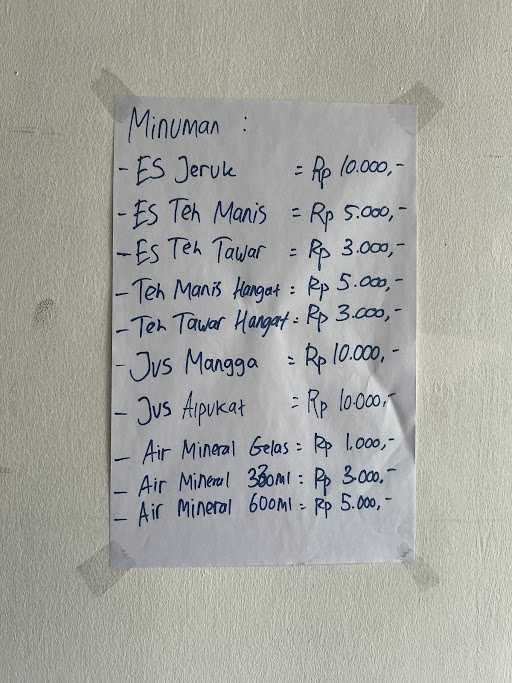 Minuman :
- ES Jeruk = Rp 10.000,-
- Es Teh Manis = Rp 5.000,-
- Es Teh Tawar = Rp 3.000,-
- Teh Manis Hangat = Rp 5.000,-
- Teh Tawar Hangat = Rp 3.000,-
- Jus Mangga = Rp 10.000,-
- Jus Alpukat = Rp 10.000,-
- Air Mineral Gelas = Rp 1.000,-
- Air Mineral 330ml = Rp 3.000,-
- Air Mineral 600ml = Rp 5.000,-